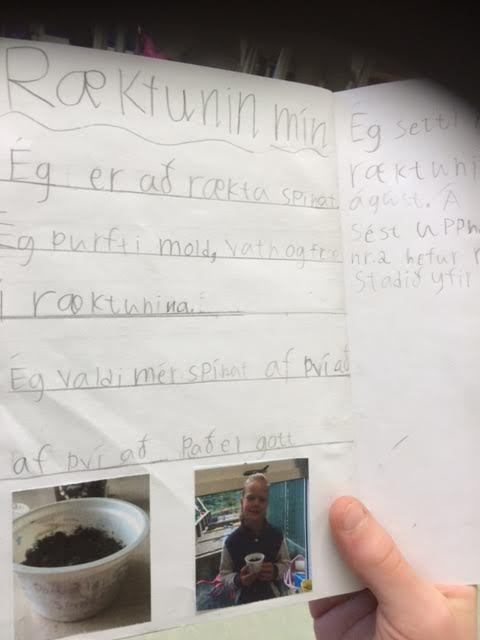 Ræktunin mín
Ég er að rækta spínat
Ég þurfti mold, vatn og fræ
í ræktunina.
Ég valdi mér spínat af því að
af því að það er gott
Ég setti
ræktuni
ágúst. Á
sést upph
nr.2 hefur
staðið yfir